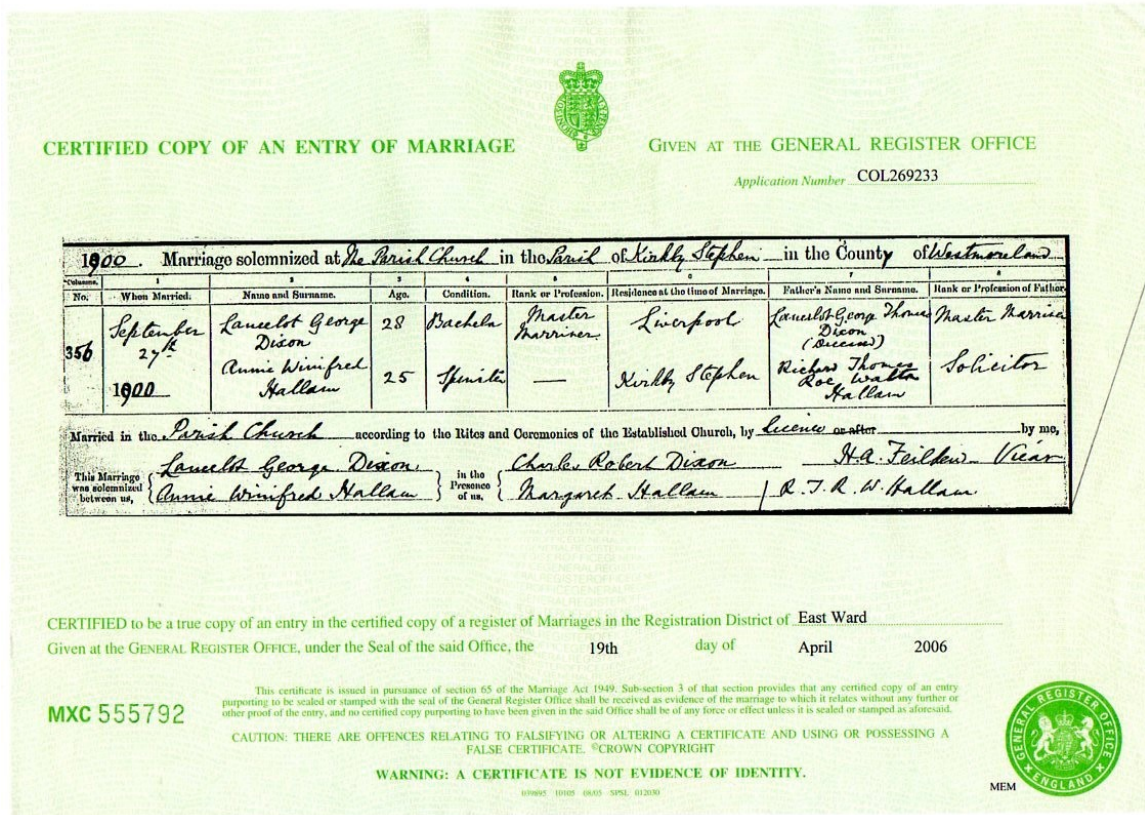 CERTIFIED COPY OF AN ENTRY OF MARRIAGE
GIVEN AT THE GENERAL REGISTER OFFICE
Application Number COL269233
1900. Marriage solemnized at The Parish Church in the Parish of Kirkby Stephen in the County of Westmoreland
Columns. 1 2 3 4 5 6 7 8
No. When Married. Name and Surname. Age. Condition. Rank or Profession. Residence at the time of Marriage. Father's Name and Surname. Rank or Profession of Father.
356
September 27th 1900
Lancelot George Dixon
28
Bachelor
Master Marriner
Liverpool
Lancelot George Thomas Dixon (Deceased)
Master Marriner
Annie Winifred Hallam
25
Spinster
—
Kirkby Stephen
Richard Thomas Roe Watta Hallam
Solicitor
Married in the Parish Church according to the Rites and Ceremonies of the Established Church, by Licence or after by me,
This Marriage was solemnized between us,
Lancelot George Dixon.
Annie Winifred Hallam
in the Presence of us,
Charles Robert Dixon
Margaret Hallam
H.A. Feilden Vicar
R. T. R. W. Hallam
CERTIFIED to be a true copy of an entry in the certified copy of a register of Marriages in the Registration District of East Ward
Given at the GENERAL REGISTER OFFICE, under the Seal of the said Office, the 19th day of April 2006
This certificate is issued in pursuance of section 65 of the Marriage Act 1949. Sub-section 3 of that section provides that any certified copy of an entry
purporting to be sealed or stamped with the seal of the General Register Office shall be received as evidence of the marriage to which it relates without any further or
other proof of the entry, and no certified copy purporting to have been given in the said Office shall be of any force or effect unless it is sealed or stamped as aforesaid.
MXC 555792
CAUTION: THERE ARE OFFENCES RELATING TO FALSIFYING OR ALTERING A CERTIFICATE AND USING OR POSSESSING A
FALSE CERTIFICATE. ©CROWN COPYRIGHT
WARNING: A CERTIFICATE IS NOT EVIDENCE OF IDENTITY.
GENERAL REGISTER OFFICE ENGLAND
MEM